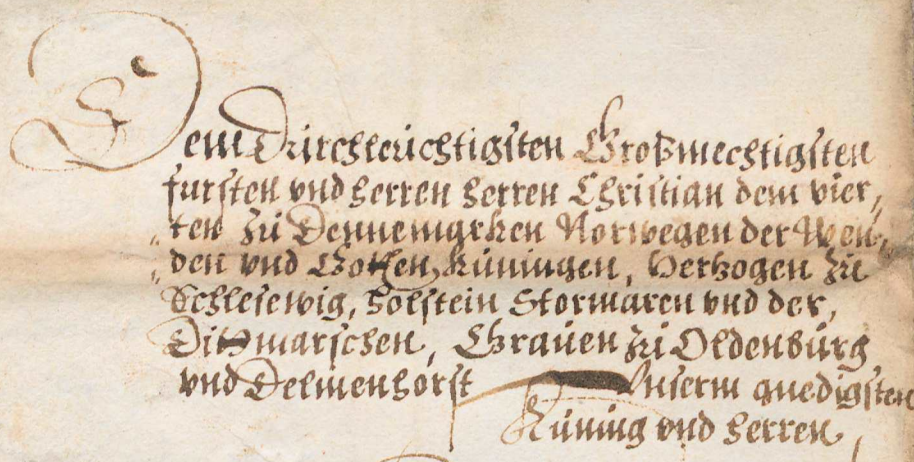 Dem Durchleuchtigsten Großmechtigsten
fursten vnd herren herren Christian dem vier„
„ten zu Dennemarken Norwegen der Wen„
„den vnd Gothen Küningen, Hertzogen zu
Schlesewig, Holstein Stormaren vnd der,
Ditmarschen, Grauen zu Oldenburg
vnd Delmenhorst Unserm gnedigsten
Küning vnd herren,